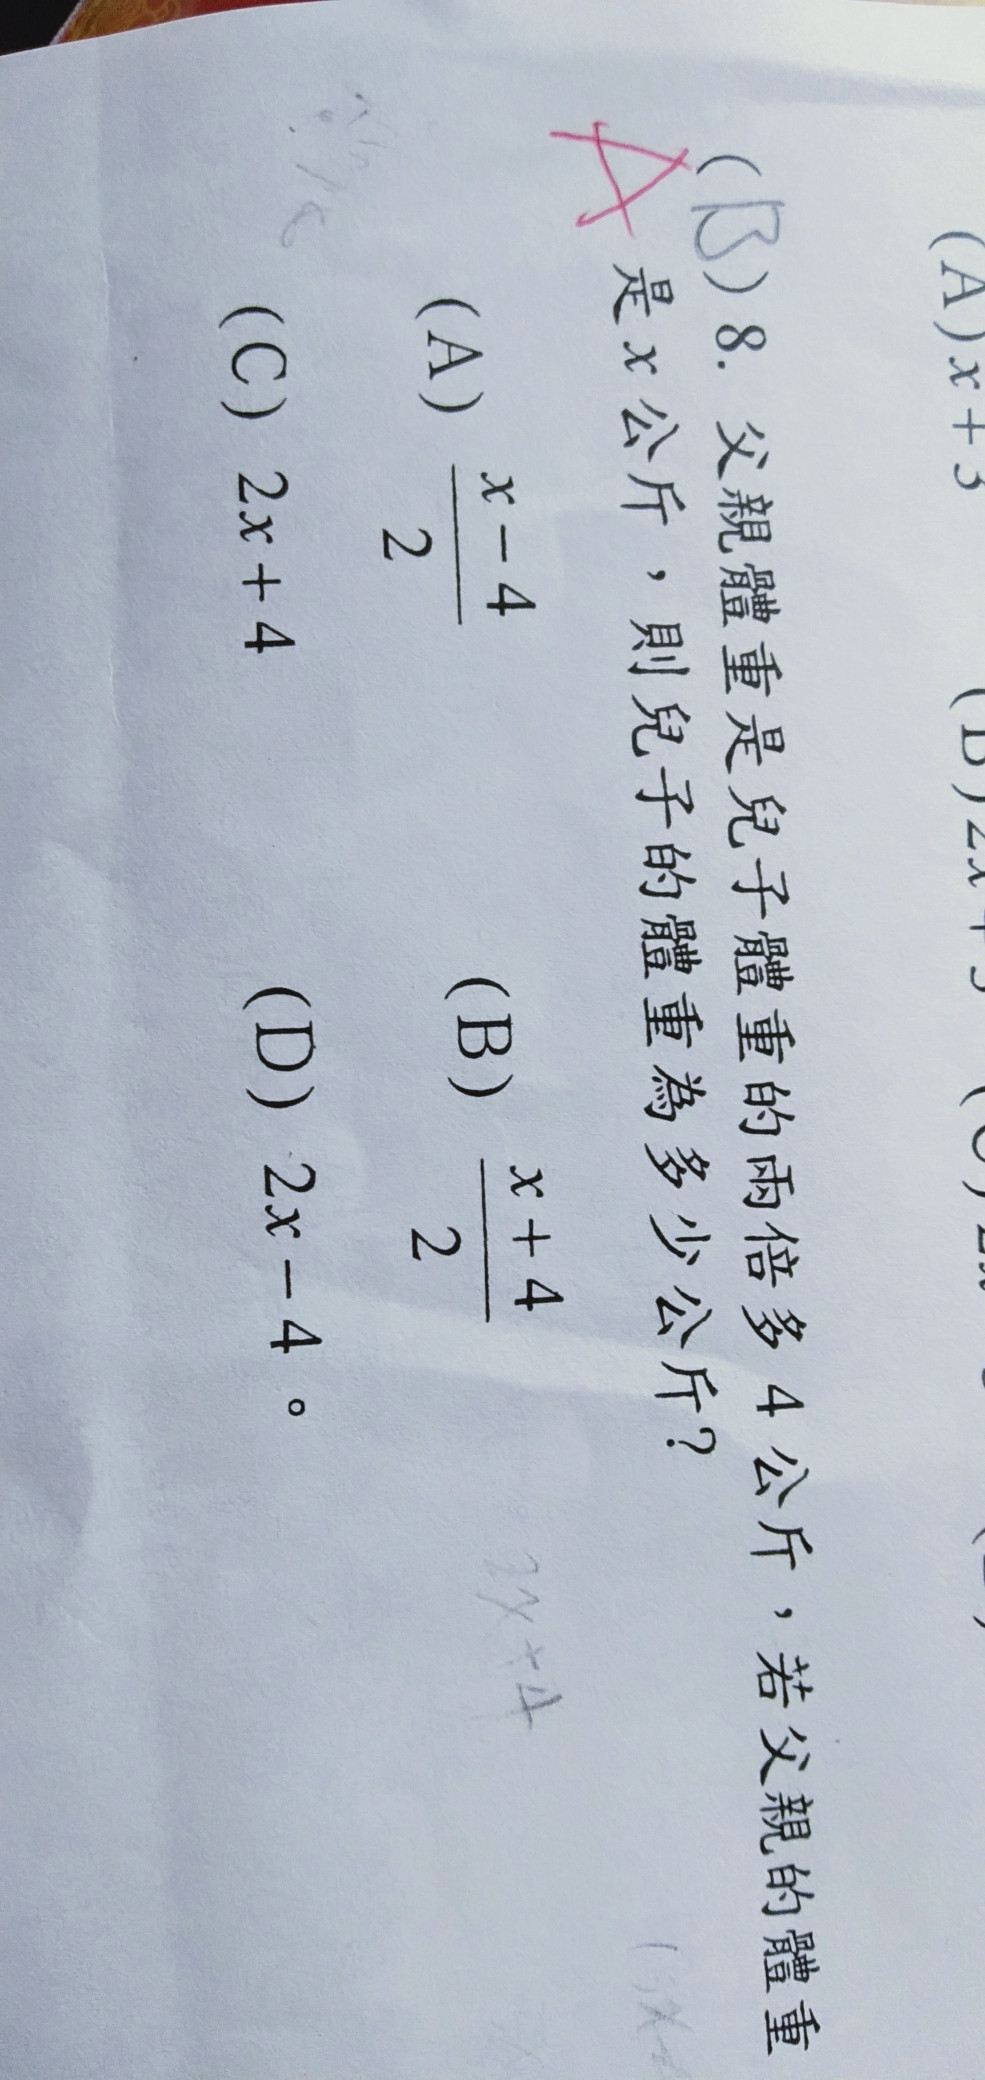 (A) x + 3
( B ) 8. 父親體重是兒子體重的兩倍多 4 公斤，若父親的體重
A 是 x 公斤，則兒子的體重為多少公斤?
(A) \frac{x-4}{2} (B) \frac{x+4}{2}
2x+4
(C) 2x+4 (D) 2x-4。